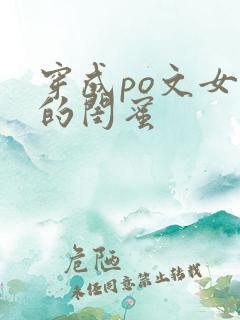 穿成po文女
的闺蜜
危陋
未经同意禁止转载